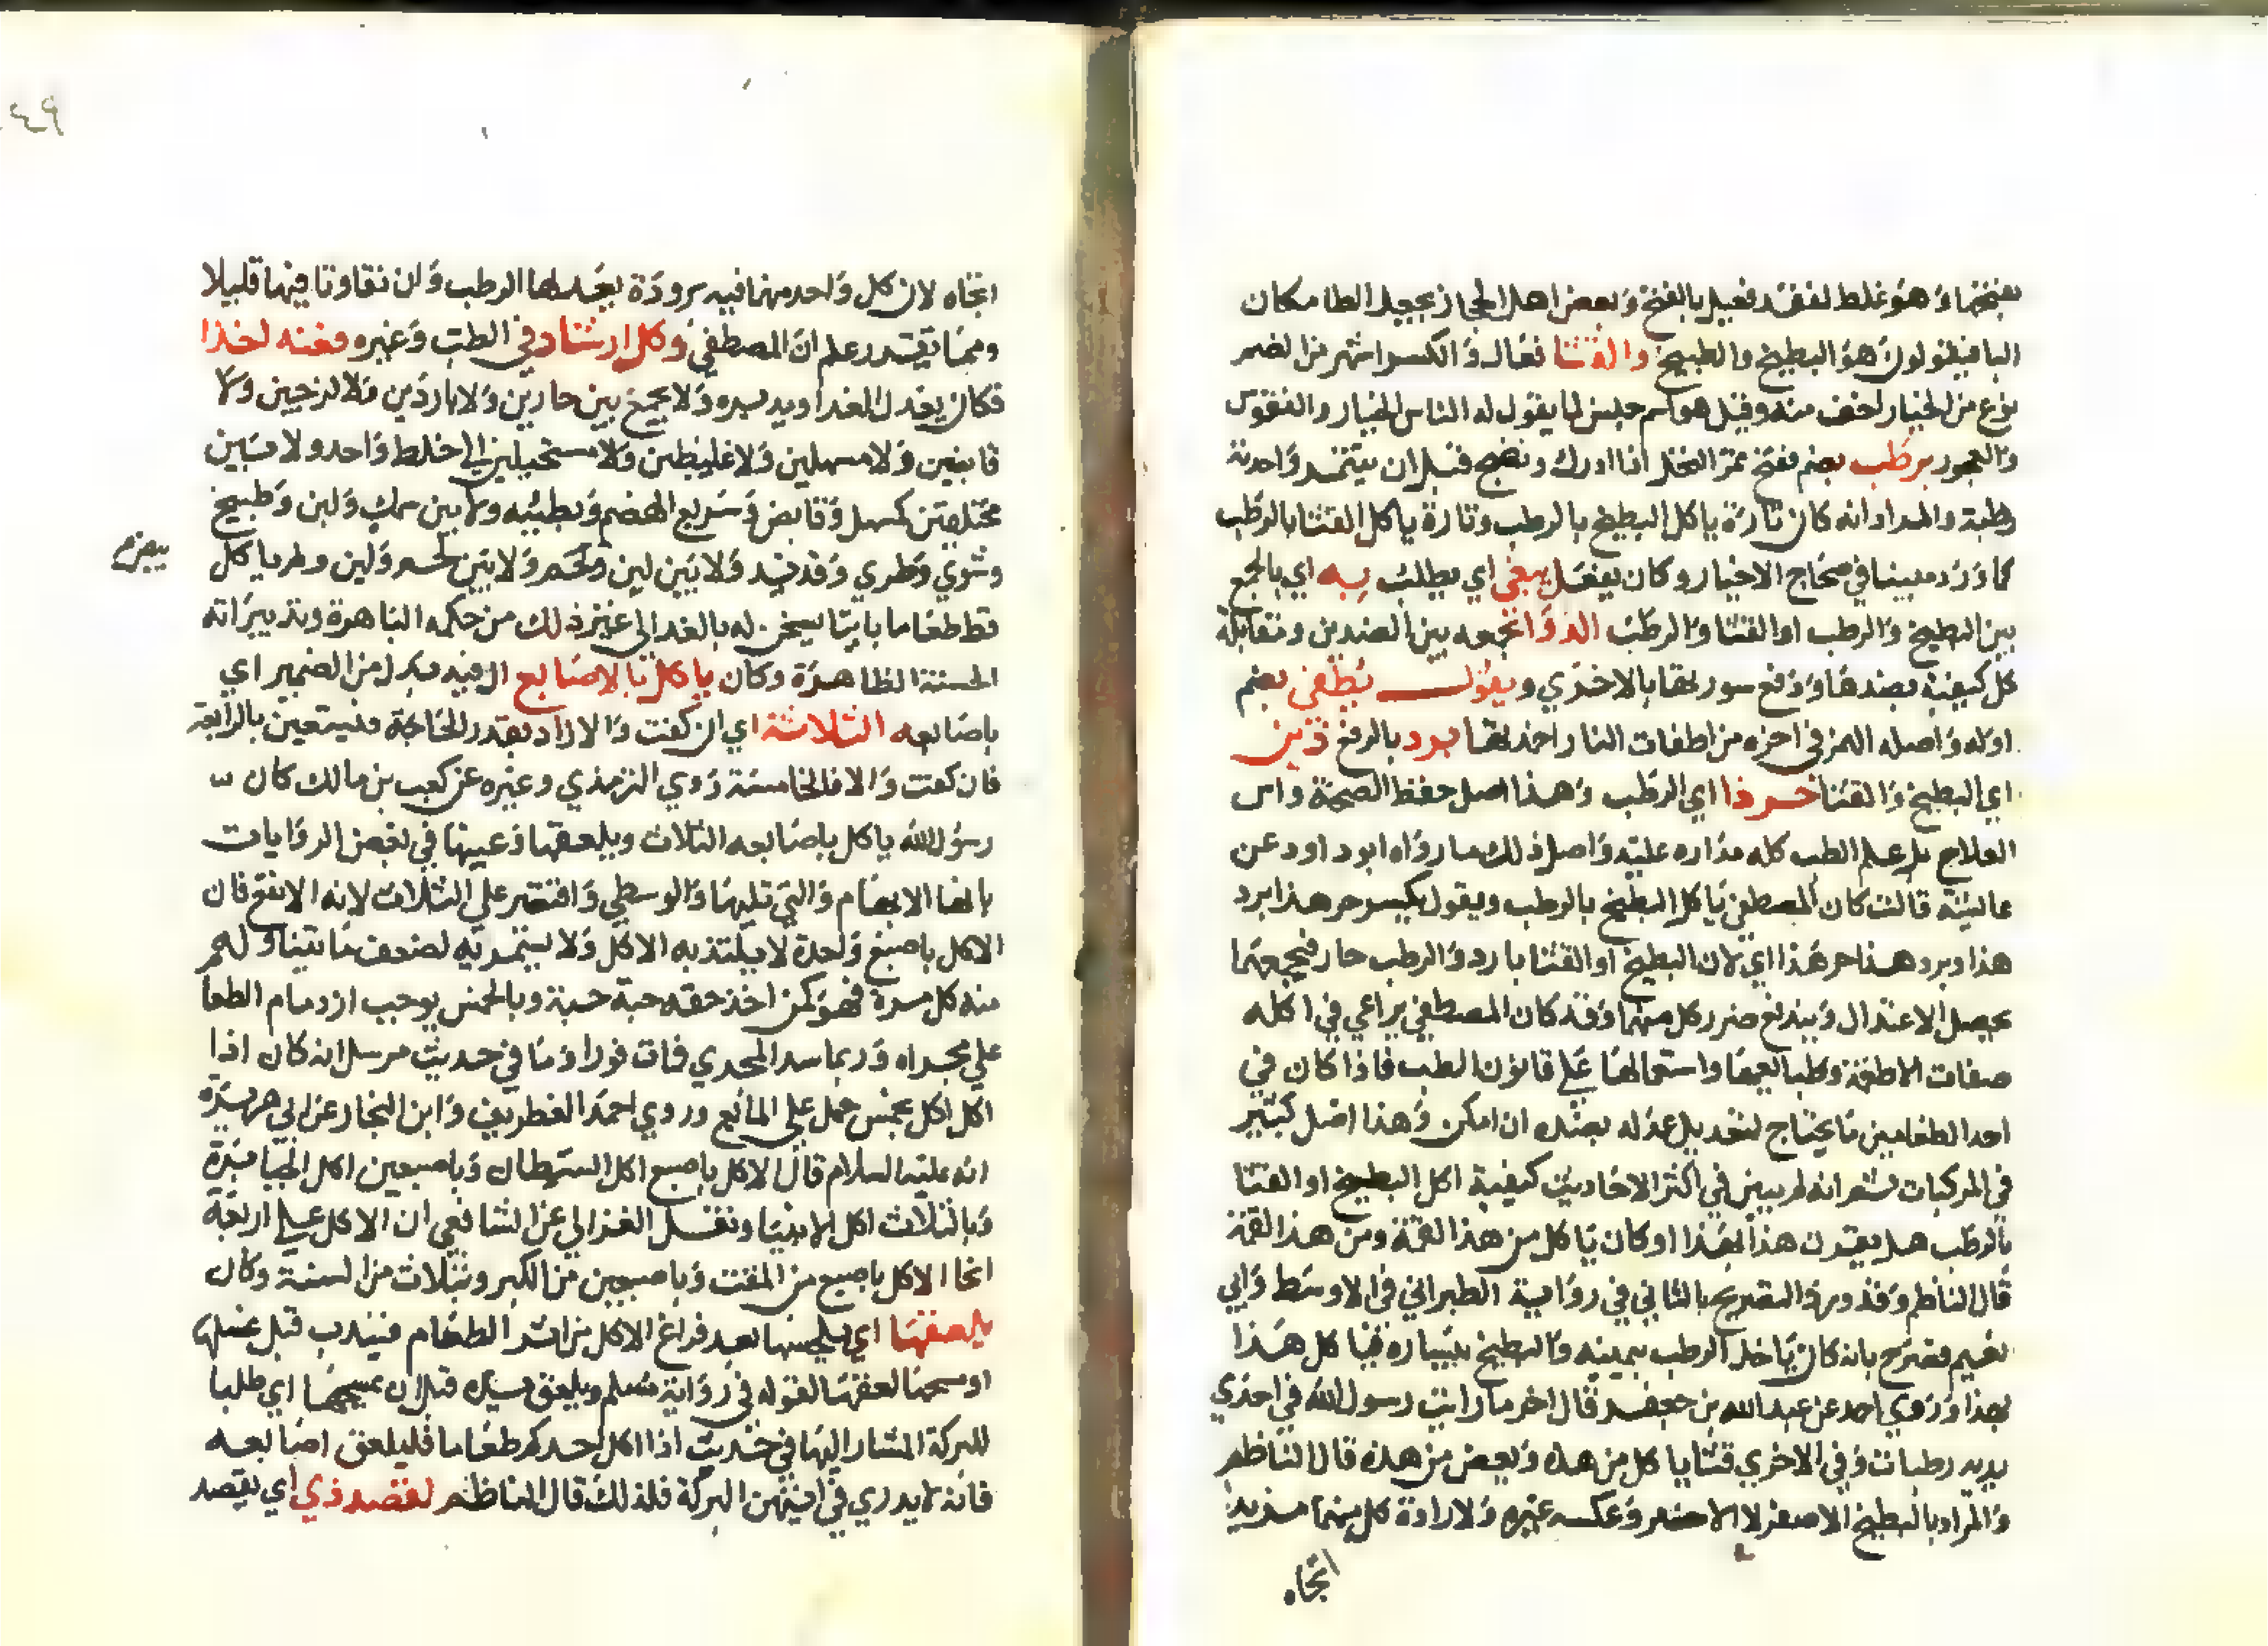 بفتحها وهو غلط لفقد فعيل بالفتح وبعض اهل الحجاز يجعل الطا مكان
البا فيقولون هو البطيخ والطبيخ والقثا فعال والكسر اشهر من الضم
نوع من الخيار اخف منه وقيل هو اسم جنس لما يقول له الناس الخيار والفقوس
والعجور برطب بضم ففتح ثمر النخل اذا ادرك ونضج قبل ان يتتمر واحدته
رطبة والمراد انه كان تارة ياكل البطيخ بالرطب وتارة ياكل القثا بالرطب
كما ورد مبينا في صحاح الاخبار وكان يفعل يبغي اي يطلب به اي بالجمع
بين البطيخ والرطب او القثا والرطب الدوا بجمعه بين الضدين ومقابلة
كل كيفية بضدها ودفع سورتها بالاخري ويقول يطفي بضم
اوله واصله الهمز في اخره من اطفات النار اخمدتها برد بالرفع ذين
اي البطيخ والقثا حر ذا اي الرطب وهذا اصل حفظ الصحة واس
العلاج بل علم الطب كله مداره عليه واصل ذلك ما رواه ابو داود عن
عائشة قالت كان المصطفي ياكل البطيخ بالرطب ويقول يكسر حر هذا برد
هذا وبرد هذا حر هذا اي لان البطيخ او القثا بارد والرطب حار فبجمعهما
يحصل الاعتدال ويندفع ضرر كل منهما وقد كان المصطفي يراعي في اكله
صفات الاطعمة وطبائعها واستعمالها علي قانون الطب فاذا كان في
احد الطعامين ما يحتاج لتعديل عدله بضده ان امكن وهذا اصل كبير
في المركبات ثم انه لم يبين في اكثر الاحاديث كيفية اكل البطيخ او القثا
بالرطب هل يقرن هذا بهذا او كان ياكل من هذا لقمة ومن هذا لقمة
قال الناظم وقد ورد التصريح بالثاني في رواية الطبراني في الاوسط وابي
نعيم فصرح بانه كان ياخذ الرطب بيمينه والبطيخ بيساره فياكل هذا
بهذا وروي احمد عن عبد الله بن جعفر قال اخر ما رايت رسول الله في احدي
يديه رطبات وفي الاخري قثا ياكل من هذه وبعض من هذه قال الناظم
والمراد بالبطيخ الاصفر لا الاخضر وعكسه غيره ولارادة كل منهما مزيد
اتجاه
اتجاه لان كل واحد منهما فيه برودة يعدلها الرطب وان تفاوتا فيها قليلا
ومما تقرر علم ان المصطفي وكل ارشاد في الطب وغيره فعنه اخذا
فكان يعدل الغدا ويدبره ولا يجمع بين حارين ولا باردين ولا لزجين ولا
قابضين ولا مسهلين ولا غليظين ولا مستحيلين الي خلط واحد ولا بين
مختلفين كمسهل وقابض وسريع الهضم وبطيئه ولا بين سمك ولبن وطبيخ
وشوي وطري وقديد ولا بين لبن ولحم ولا بين لحم ولبن ولم ياكل
بيض
قط طعاما بايتا يسخن له بالغد الي غير ذلك من حكمه الباهرة وتدبيراته
الحسنة الظاهرة وكان ياكل بالاصابع ال فيه بدل من الضمير اي
باصابعه الثلاثة اي ان كفت والا زاد بقدر الحاجة فيستعين بالرابعة
فان كفت والا فالخامسة روي الترمذي وغيره عن كعب بن مالك كان
رسول الله ياكل باصابعه الثلاث ويلعقها وعينها في بعض الروايات
بانها الابهام والتي تليها والوسطي واقتصر علي الثلاث لانه الانفع فان
الاكل باصبع واحدة لا يلتذ به الاكل ولا يستمريه لضعف ما يتناوله
منه كل مرة فهو كمن اخذ حقه حبة حبة وبالخمس يوجب ازدحام الطعام
علي مجراه وربما سد المجري فمات فورا وما في حديث مرسل انه كان اذا
اكل اكل بخمس حمل علي المائع وروي احمد الغطريفي وابن النجار عن ابي هريرة
انه عليه السلام قال الاكل باصبع اكل الشيطان وباصبعين اكل الجبابرة
وبالثلاث اكل الانبيا ونقل الغزالي عن الشافعي ان الاكل علي اربعة
انحا الاكل باصبع من المقت وباصبعين من الكبر وبثلاث من السنة وكان
يلعقها اي يلحسها بعد فراغ الاكل من اثر الطعام فيندب قبل غسلها
او مسحها لعقها لقوله في رواية مسلم ويلعق يده قبل ان يمسحها اي طلبا
للبركة المشار اليها في حديث اذا اكل احدكم طعاما فليلعق اصابعه
فانه لا يدري في ايتهن البركة فلذلك قال الناظم لقصد ذي اي بقصد